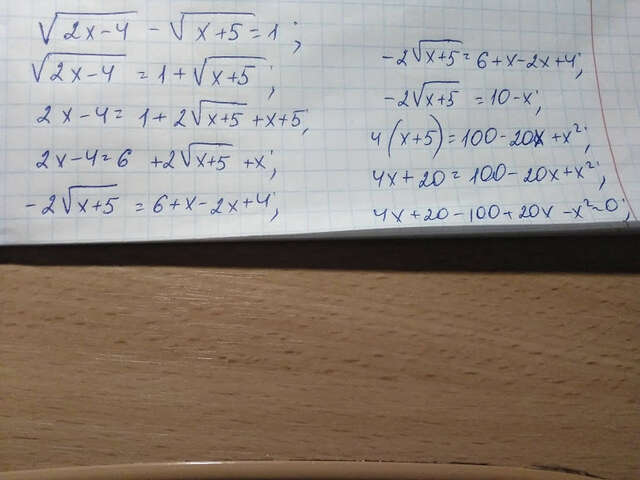 √(2x-4) - √(x+5) = 1;
√(2x-4) = 1 + √(x+5);
2x-4 = 1 + 2√(x+5) + x+5;
2x-4 = 6 + 2√(x+5) + x;
-2√(x+5) = 6+x-2x+4;
-2√(x+5) = 6+x-2x+4;
-2√(x+5) = 10-x;
4(x+5) = 100-20x+x²;
4x+20 = 100-20x+x²;
4x+20-100+20x-x²=0;